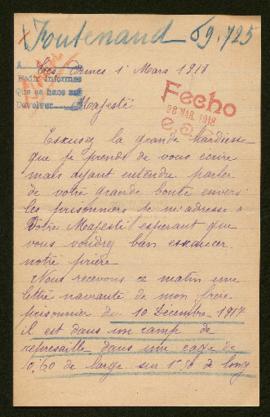 X Toutenand 69.725
A
Pedir Informes
Que se hace aux
Devolver
Fecho
28 MAR. 1918
Les Ormes 1 Mars 1918
Majesté
Excusez la grande hardiesse
que je prends de vous ecrire
mais ayant entendre parler
de votre grande bonté envers
les prisonniers je m'adresse à
Votre Majesté esperant que
vous voudrez bien exaucer
notre prière
Nous recevons ce matin une
lettre navrante de mon frère
prisonnier du 10 décembre 1917
il est dans un camp de
represaille dans une cage de
0,60 de large sur 1m
de long